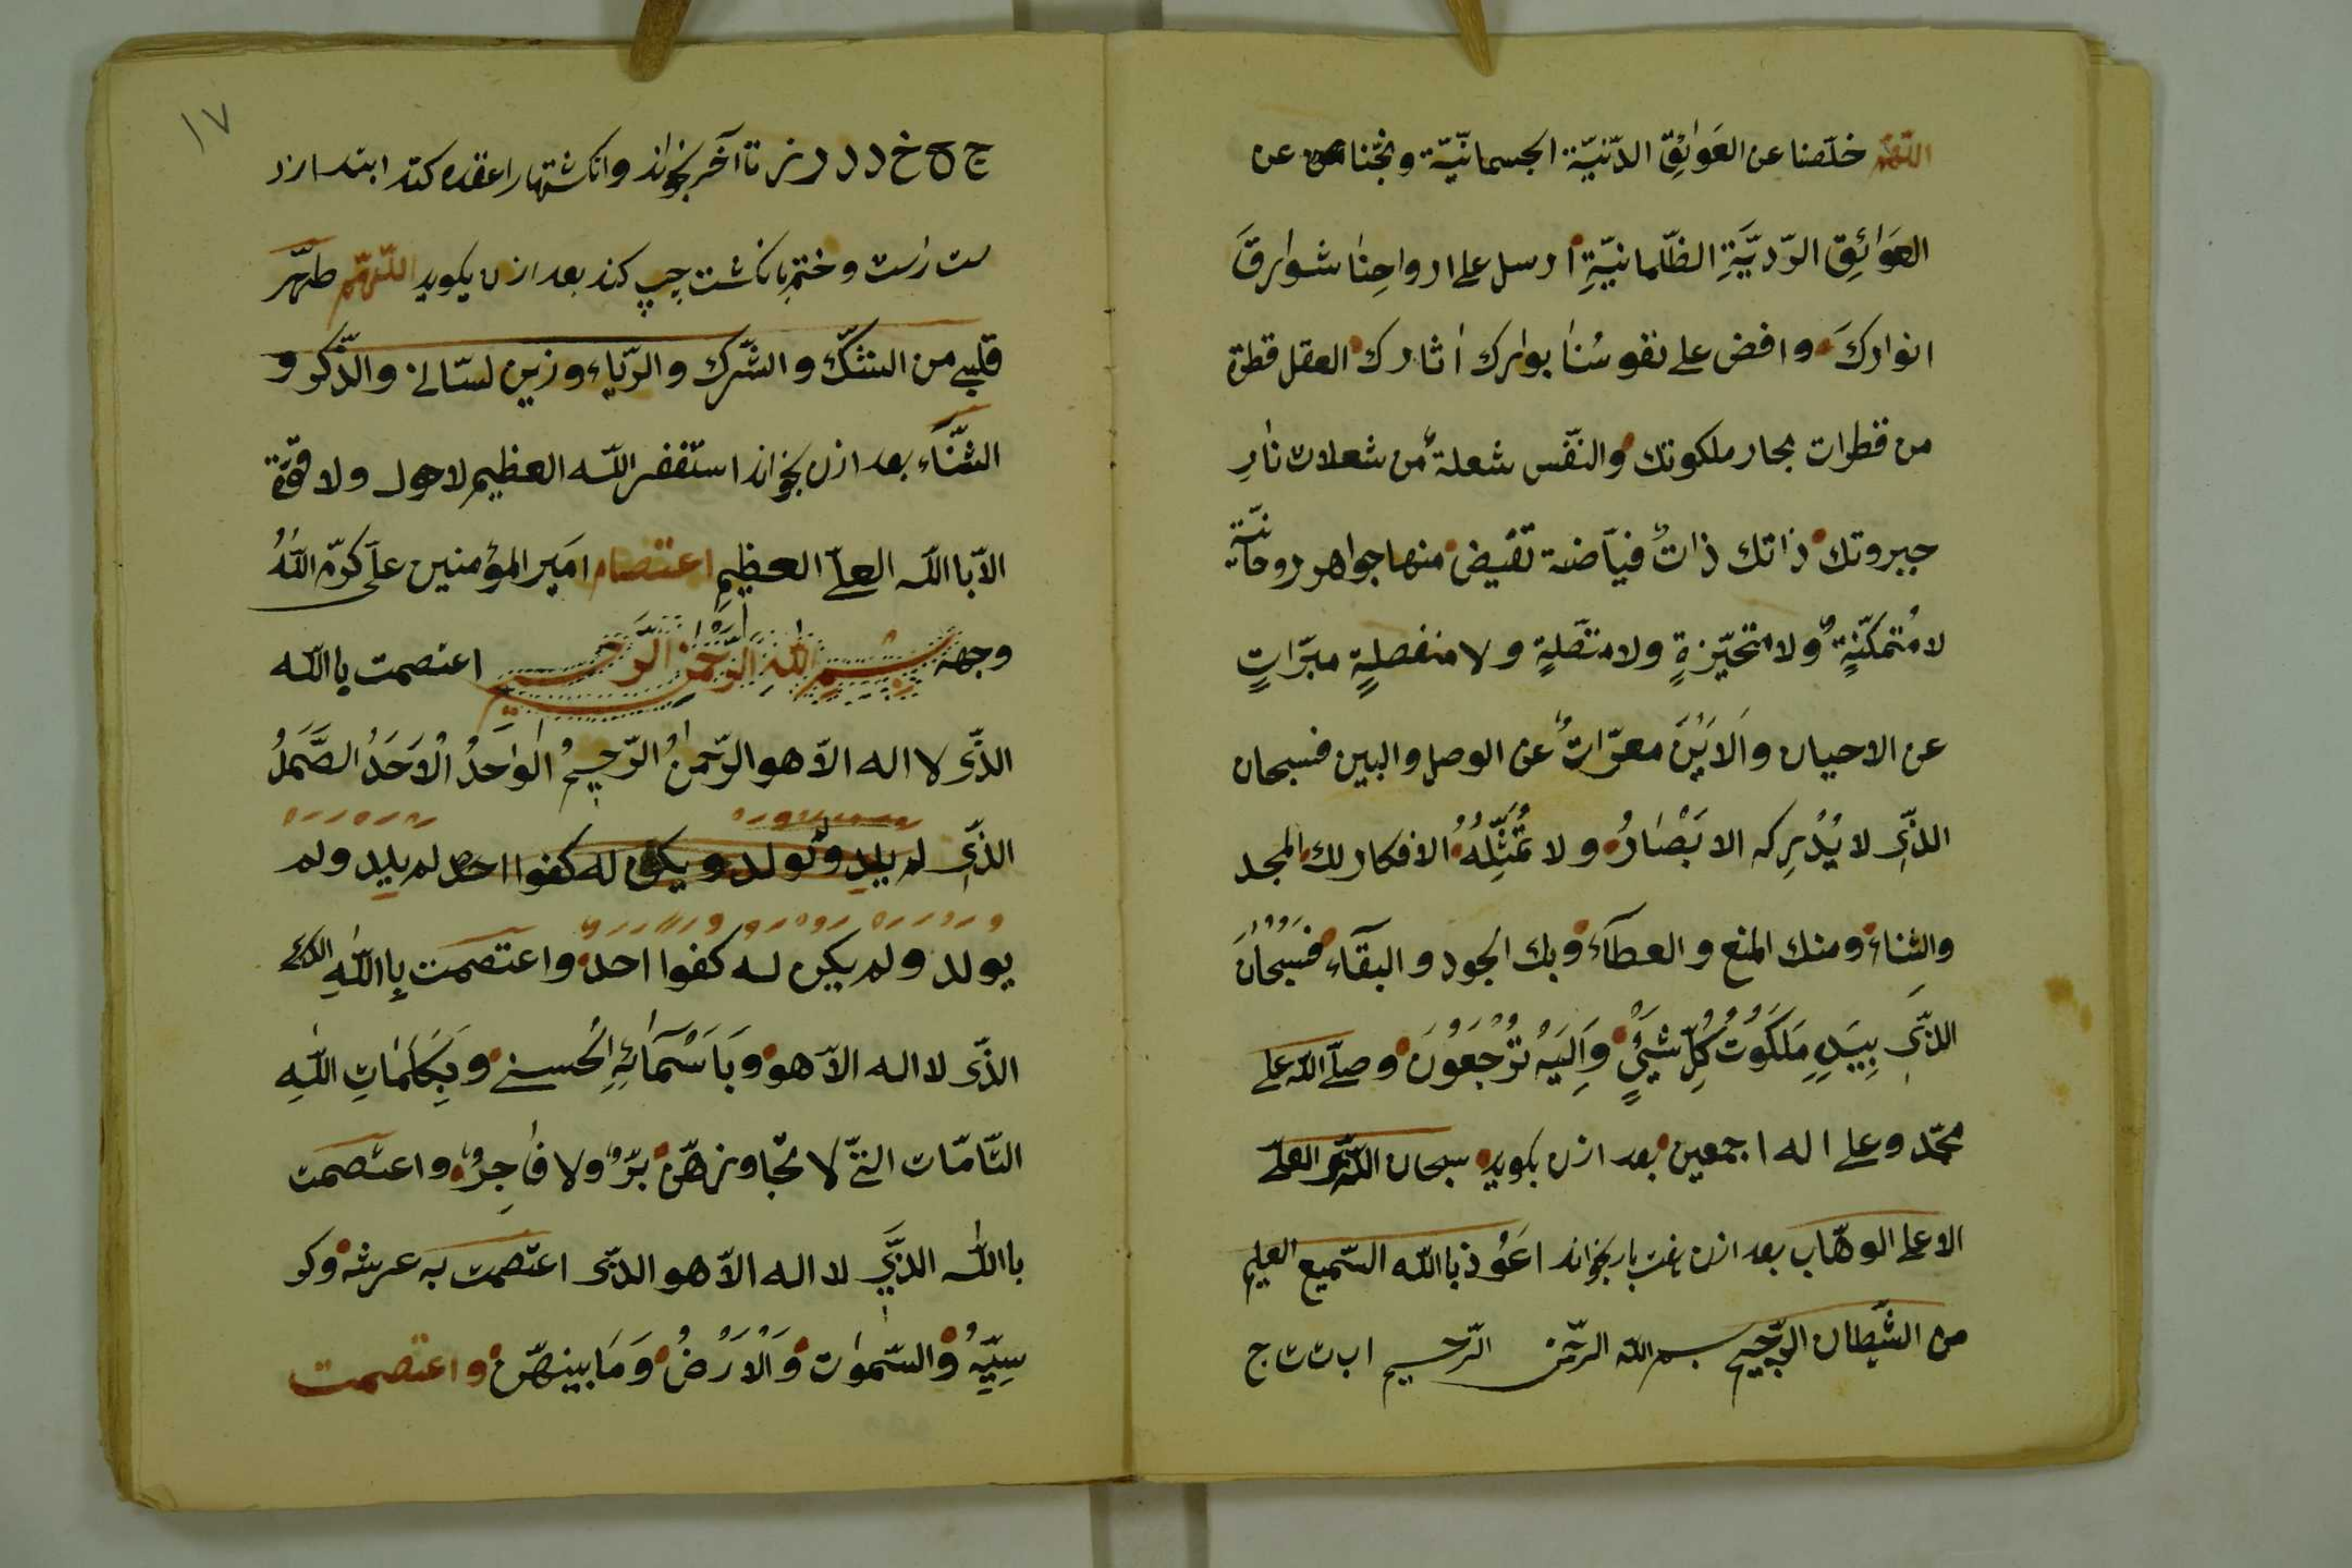 اللّهمّ خلّصنا عن العَوٰایِٔقِ الدّنیّة الجسمانیّة ونجّنا عن
العَوَائِقِ الرّدیَّةِ الظّلمانیّةِ ارسل علی ارواحِنٰا شوٰارقَ
انوارکَ وافض علی نفوسُنٰا بوٰارک اٰثارک العقل قطرة
من قطرات بحار ملکوتك والنّفس شعلةٌ من شعلات نٰارِ
جبروتك ذٰاتك ذاتٌ فیّاضة تفیض منها جواهر روحانیّة
لا مُتمکّنةٍ ولا متحیّزةٍ ولا متّصلةٍ ولا منفصلةٍ مبرّاتٍ
عن الاحیان وَالاَیْنَ معرّاتٌ عن الوصل والبین فسبحان
الذّی لا یُدْرِکه الابَصْٰارُ ولا تُمَثِّلُهُ الافکار لك المجد
والثناء ومنك المنع والعطآء وبك الجود والبقآء فَسُبْحٰانَ
الذّی بِیَدِهِ مَلَکُوْتُ کُلِّ شَیْیٍٔ وَاِلَیْهِ تُرْجَعُوْنَ وصلّی اللّه علی
محمّد وعلی اله اجمعین بعد ازن بکوید سبحان اللّه العلی
الاعلی الوهّاب بعد ازن هفت بار بخواند اعَوُذ باالله السّمیع العلیم
من الشّیطان الرّجیم بسم الله الرّحمن الرّحیم ا ب ت ث ج
ج ح خ د ذ ر ز تا آخر بخواند وانکشتهارا عقده کند ابتدا از د
ست راست وختم بانکشت چپ کند بعد ازن بکوید اللّهمّ طهّر
قلبی من الشّكّ والشّرك والرّیاء وزین لسّانی والذّکر و
الثّنَآء بعد ازن بخواند استغفر اللّه العظیم لاحول ولا قوّة
الاّ باالله العلیّ العظیم اعتصام امَیر المؤمنین علی کرّم اللّهُ
وجهه بِسْمِ اللّهِ الرَّحْمٰنِ الرَّحِیم اعتصمت باالله
الذّی لا اله الاّ هو الرّحمنُ الرّحیمُ الوٰاحَدُ الْاَحَدُ الصَّمَدُ
الذّی لم یلد ولولد ویکن له کفوا احد لم یلد ولم
یولد ولم یکن له کفوا احد واعتصمت بِاللّهِ الذی
الذّی لا اله الاّ هو وَبَاَسْمَآئِهِ الُحسنی وَبِکَلِمَٰاتِ اللّٰهِ
التّامّات التیّ لا تجاوزهّن برٌّ ولا فٰاجِرٌ واعتصمت
باالله الذَّی لا اله الاّ هو الذّی اعتصمت به عرشه وکر
سِیِّهُ والسّموٰات وَالْاَرَضُ وَمٰا بینهّن واعتصمت
١٧